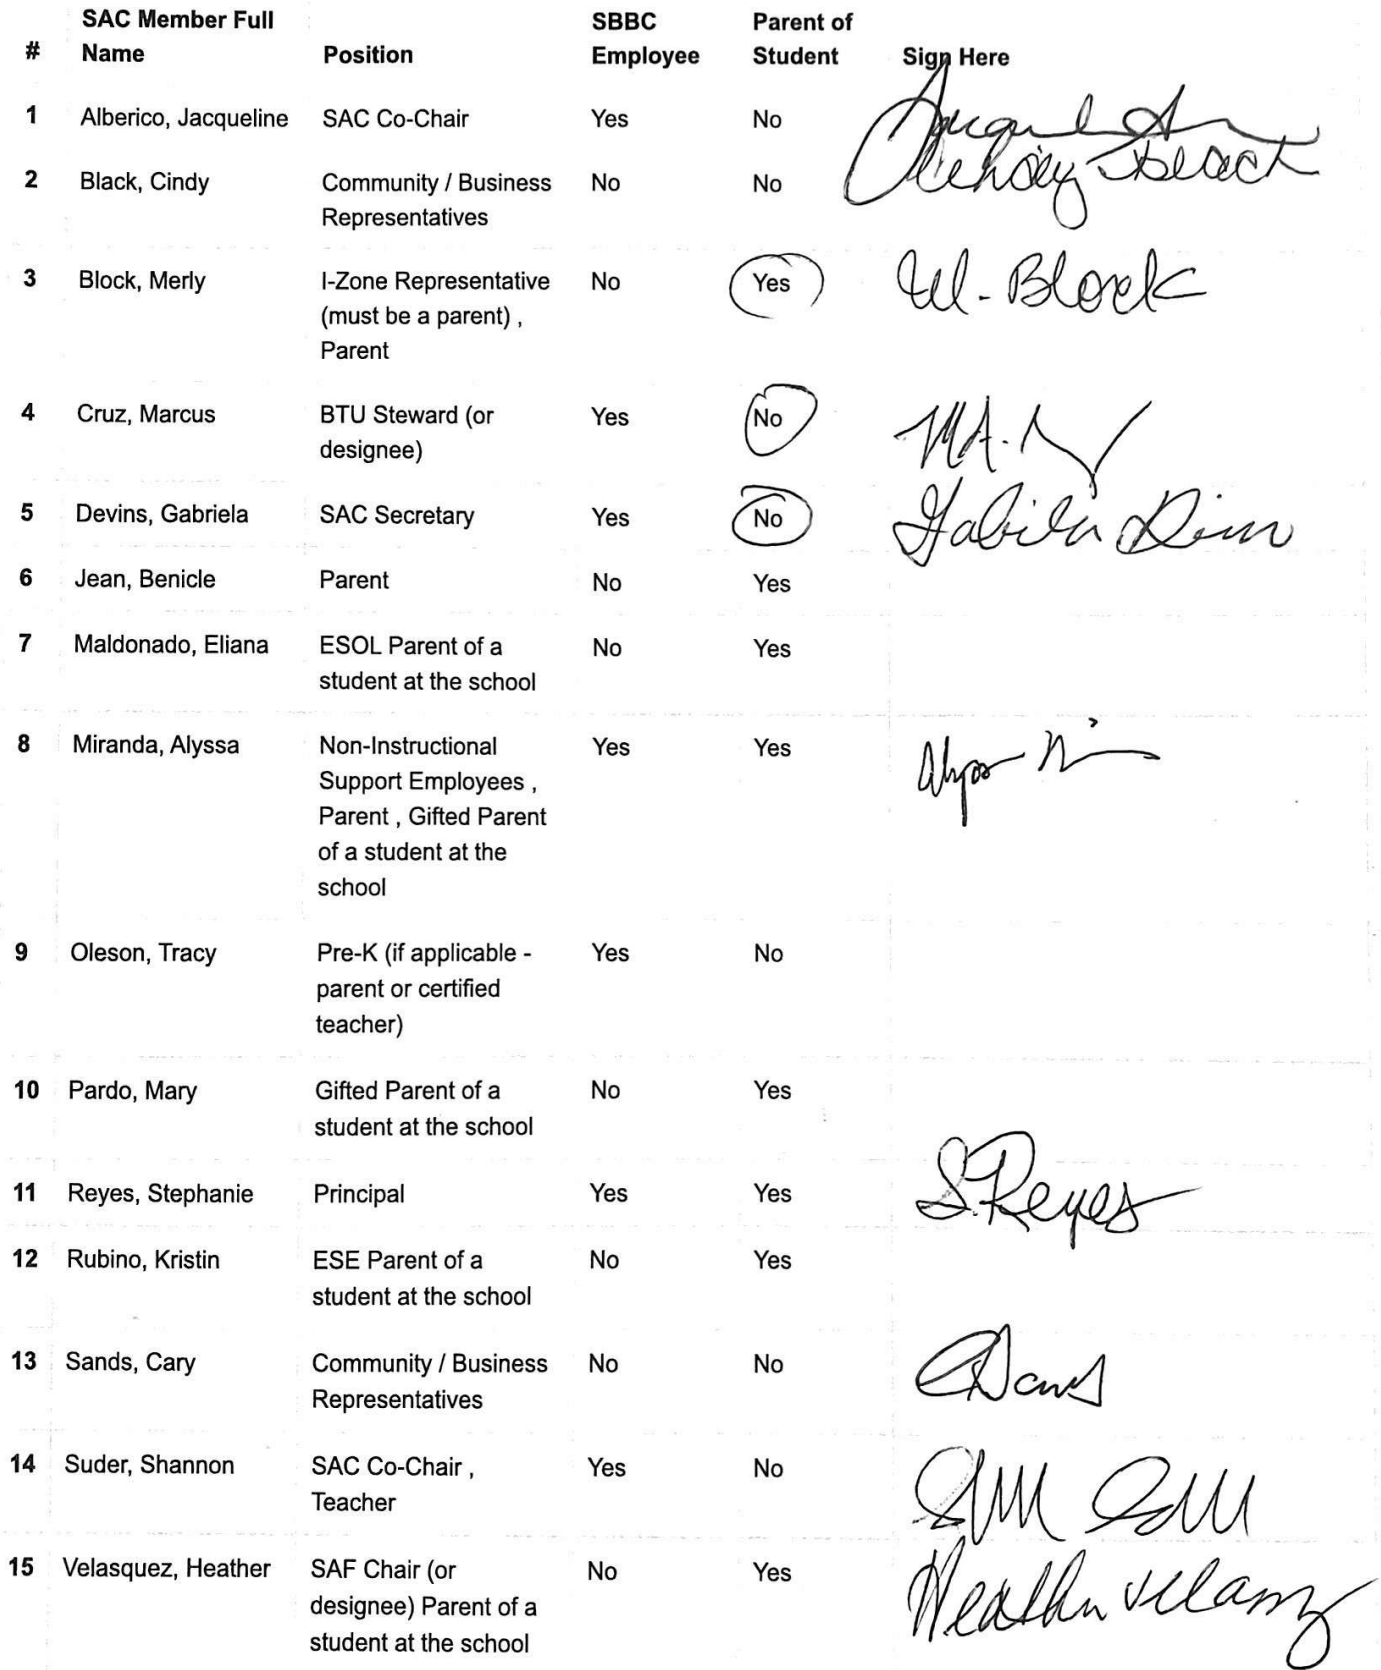 # SAC Member Full Name Position SBBC Employee Parent of Student Sign Here
1 Alberico, Jacqueline SAC Co-Chair Yes No
2 Black, Cindy Community / Business No No
Representatives
3 Block, Merly I-Zone Representative No Yes M. Block
(must be a parent) ,
Parent
4 Cruz, Marcus BTU Steward (or Yes No
designee)
5 Devins, Gabriela SAC Secretary Yes No
6 Jean, Benicle Parent No Yes
7 Maldonado, Eliana ESOL Parent of a No Yes
student at the school
8 Miranda, Alyssa Non-Instructional Yes Yes
Support Employees ,
Parent , Gifted Parent
of a student at the
school
9 Oleson, Tracy Pre-K (if applicable - Yes No
parent or certified
teacher)
10 Pardo, Mary Gifted Parent of a No Yes
student at the school
11 Reyes, Stephanie Principal Yes Yes S. Reyes
12 Rubino, Kristin ESE Parent of a No Yes
student at the school
13 Sands, Cary Community / Business No No
Representatives
14 Suder, Shannon SAC Co-Chair , Yes No
Teacher
15 Velasquez, Heather SAF Chair (or No Yes
designee) Parent of a
student at the school